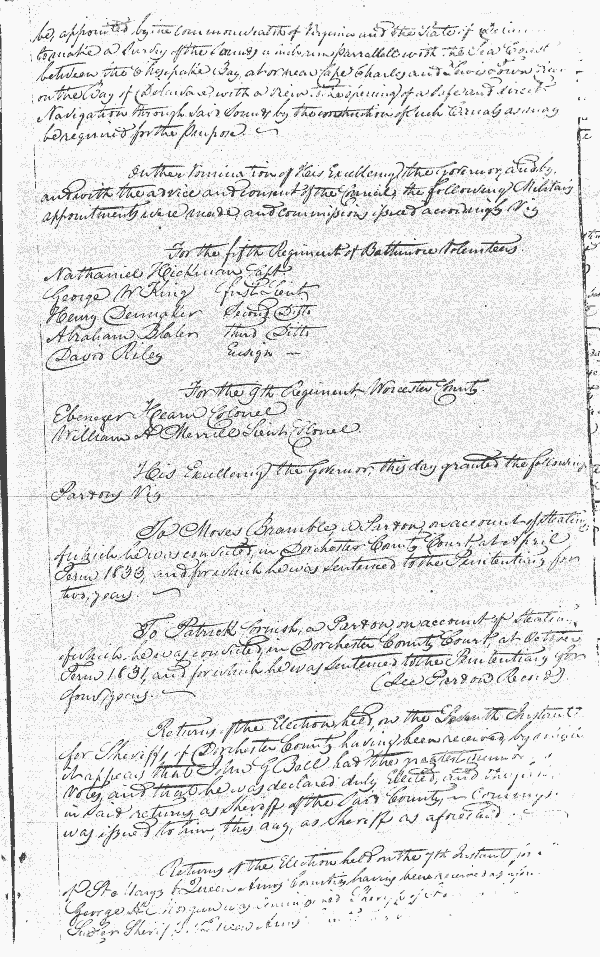 be, appointed by the Commonwealth of Virginia and the State of
to make a Survey of the Sounds & inlets in parrallell with the Sea Coast
between the Chesapeake Bay, at or near Cape Charles and Town
on the Bay of Delaware with a view to the opening of a safe and direct
Navigation through said Sounds by the construction of such Canals as may
be required for the purpose.
On the Nomination of His Excellency, the Governor, and by,
and with the advice and consent of the Council, the following Military
appointments were made, and commissions issued accordingly Viz
For the fifth Regiment of Baltimore Volunteers.
Nathaniel Hickman Capt.
George W King first Lieut
Henry Denmaker Second Ditto
Abraham Blaler third Ditto
David Riley Ensign
For the 9th Regiment Worcester County
Ebenezer Hearn Colonel
William H Merrill Lieut. Colonel
His Excellency the Governor, this day granted the following
Pardons Viz
To Moses Bramble, a Pardon, on account of Stealing
of which he was convicted, in Dorchester County Court, at April
Term 1833, and for which he was sentenced to the Penitentiary for
two, years.
To Patrick Cornish, a Pardon, on account of Stealing
of which, he was convicted, in Dorchester County Court, at October
Term 1831, and for which he was sentenced to the Penitentiary for
four, years. (See Pardon Record)
Returns of the Election held, on the Seventh Instant
for Sheriff, of Dorchester County having been received, by which
it appears that John G Bell had the greatest number
Votes, and that he was declared duly Elected, and
in said returns, as Sheriff of the said County, a Commission
was issued to him, this day, as Sheriff as aforesaid
Returns of the Election held on the 7th Instant, for
of St Marys & Queen Anns Counties, having been received
George H Morgan was Commissioned
Sheriff